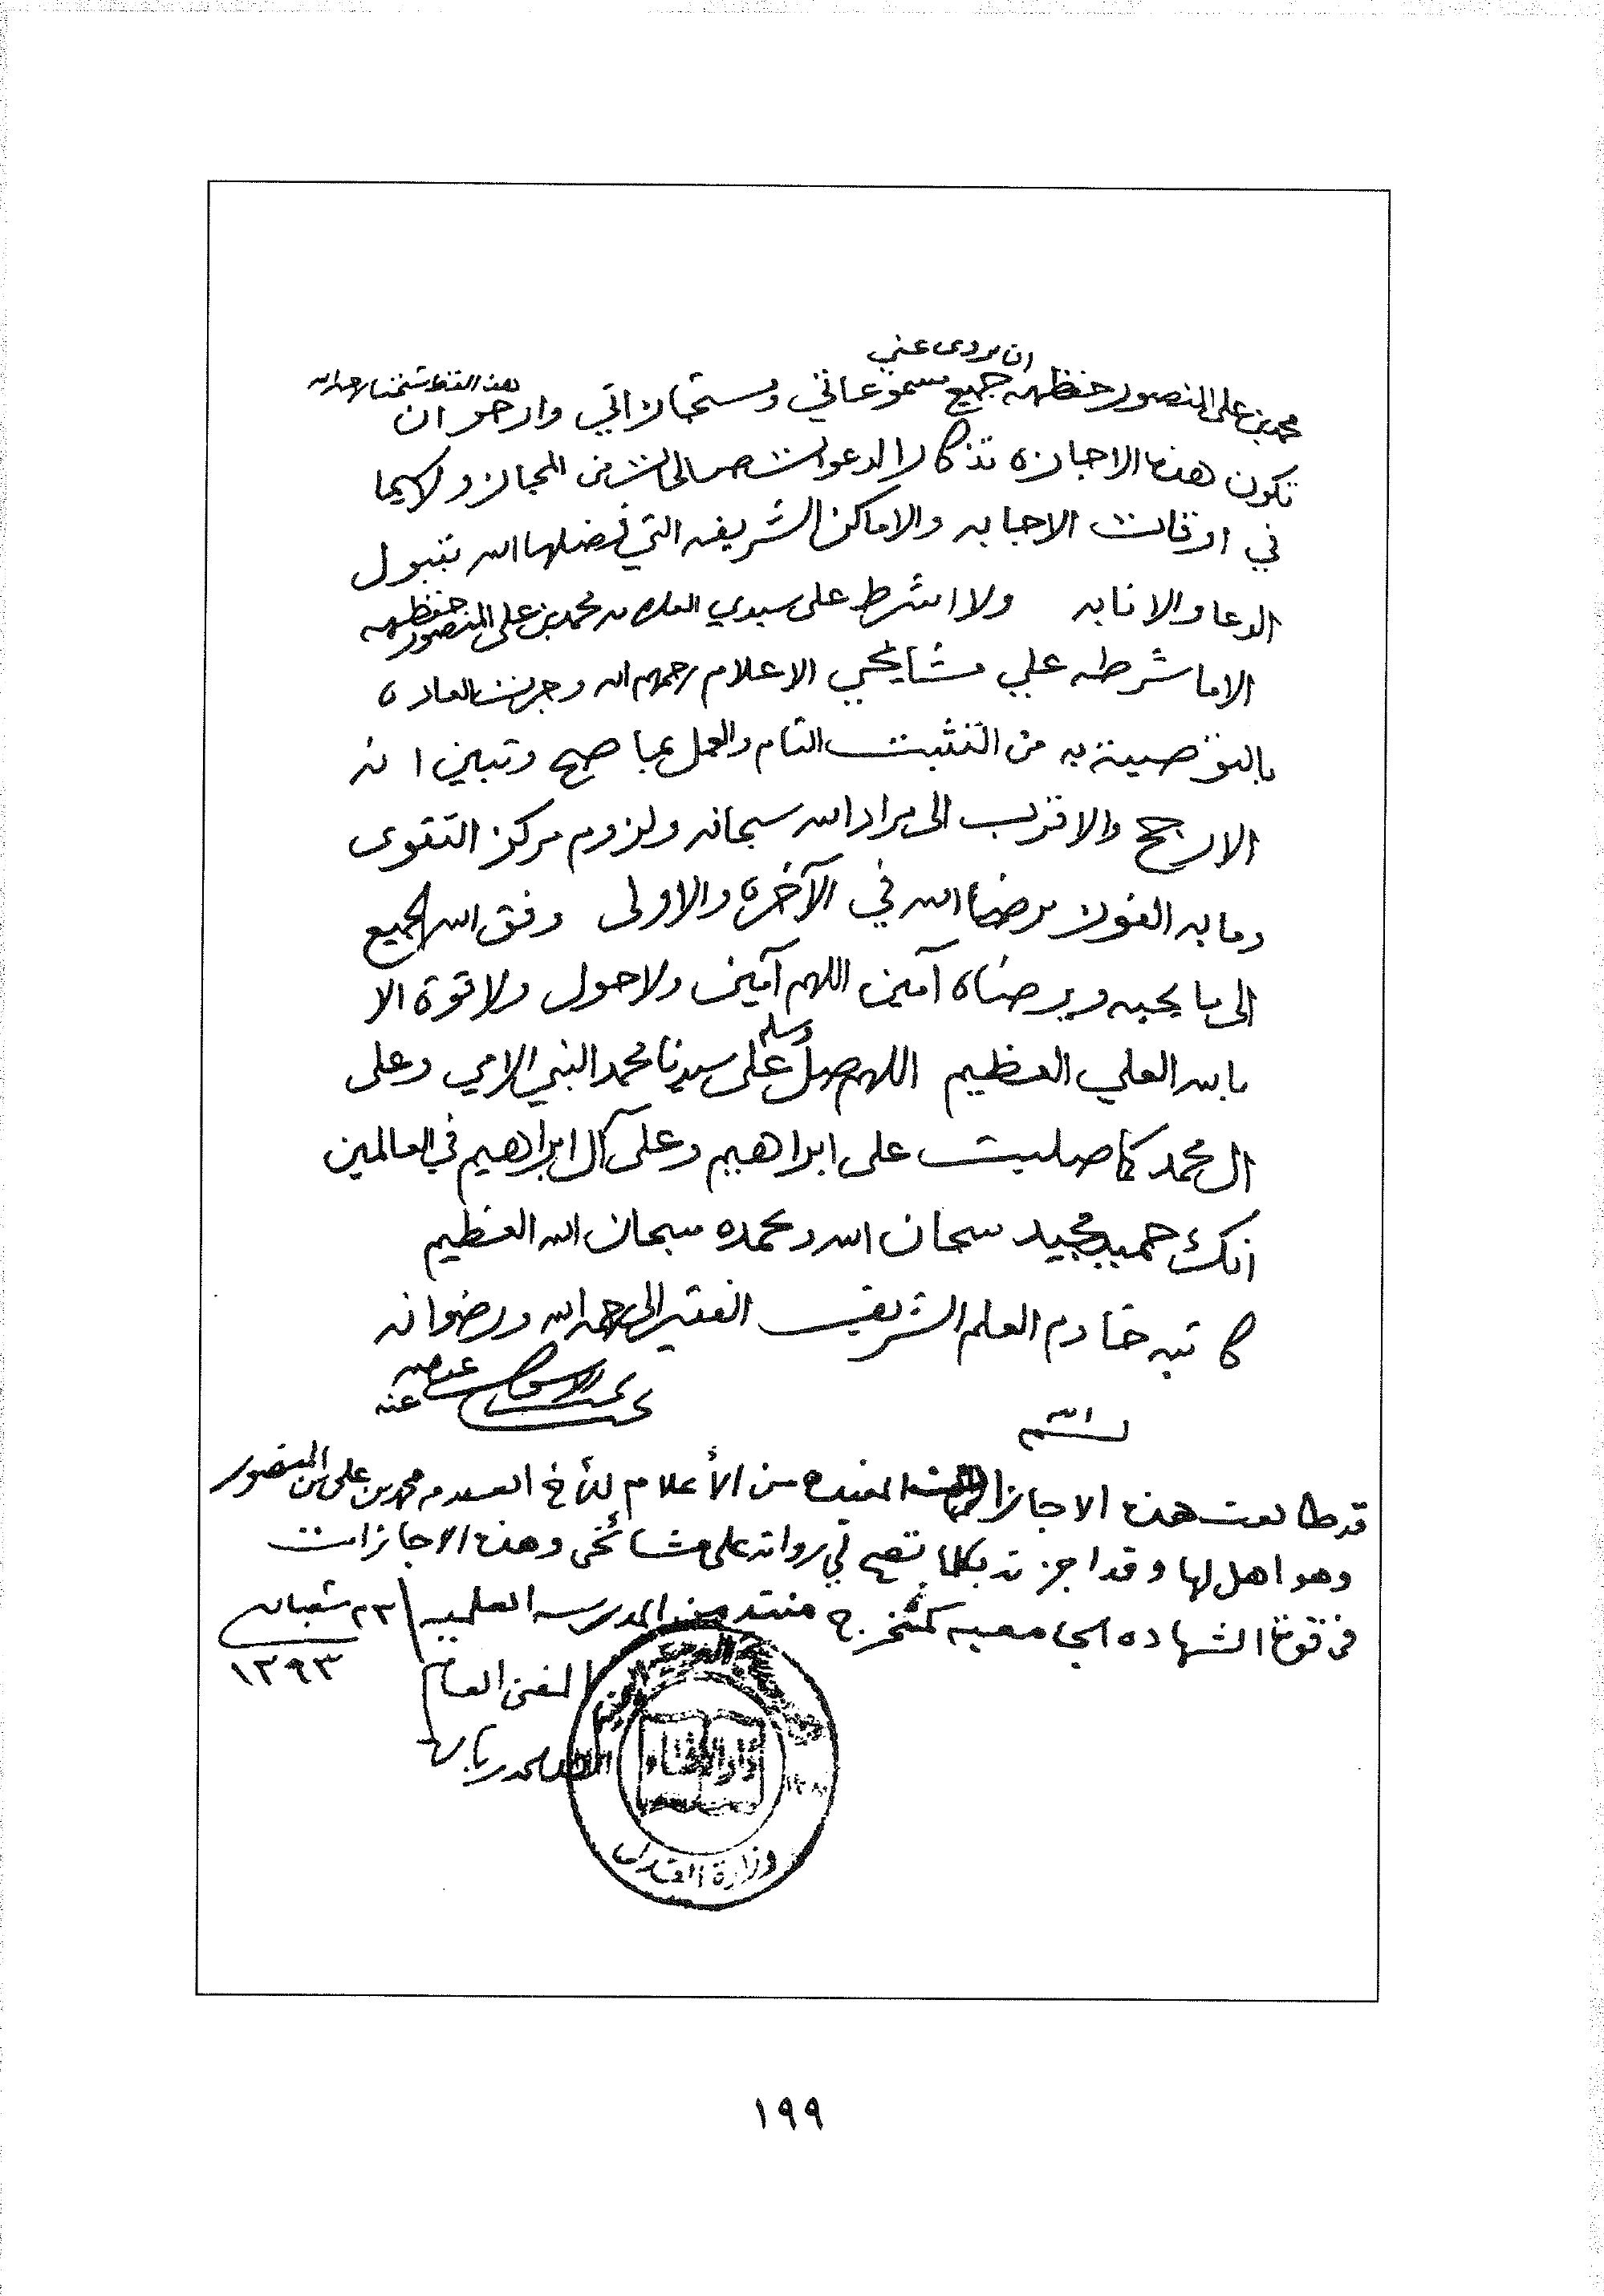 ان يروى عني
محمد بن علي المنصور حفظه الله جميع مسموعاتي ومستجازاتي وارجو ان
تكون هذه الاجازة تذكارا لدعوات صالحات من المجاز ولاسيما
في اوقات الاجابه والاماكن الشريفه التي فضلها الله بقبول
الدعا والانابه ولا اشرط على سيدي العلامه محمد بن علي المنصور حفظه الله
الا ما شرطه علي مشايخي الاعلام رحمهم الله وجرت العادة
بالتوصية به من التثبت التام والعمل بما صح وتبين انه
الارجح والاقرب الى مراد الله سبحانه ولزوم مركز التقوى
وما به الفوز برضاالله في الآخرة والاولى وفق الله الجميع
الى ما يحبه ويرضاه آمين اللهم آمين ولاحول ولاقوة الا
بالله العلي العظيم اللهم صل وسلم على سيدنا محمد النبي الامي وعلى
ال محمد كما صليت على ابراهيم وعلى آل ابراهيم في العالمين
انك حميد مجيد سبحان الله وبحمده سبحان الله العظيم
كاتبه خادم العلم الشريف الفقير الى رحمة الله ورضوانه
عنه
قد طالعت هذه الاجازات المفيده من الأعلام للأخ العلامه محمد بن علي بن المنصور
وهو اهل لها وقد اجزته بكلما تصح لي روايته على مشائخي وهذه الاجازات
هي فوق الشهاده الجامعيه كمتخرج من المدرسه العلميه ٢٣ شعبان
١٣٩٣
المفتي العام
احمد زباره
دار الافتاء
وزارة العدل
١٩٩